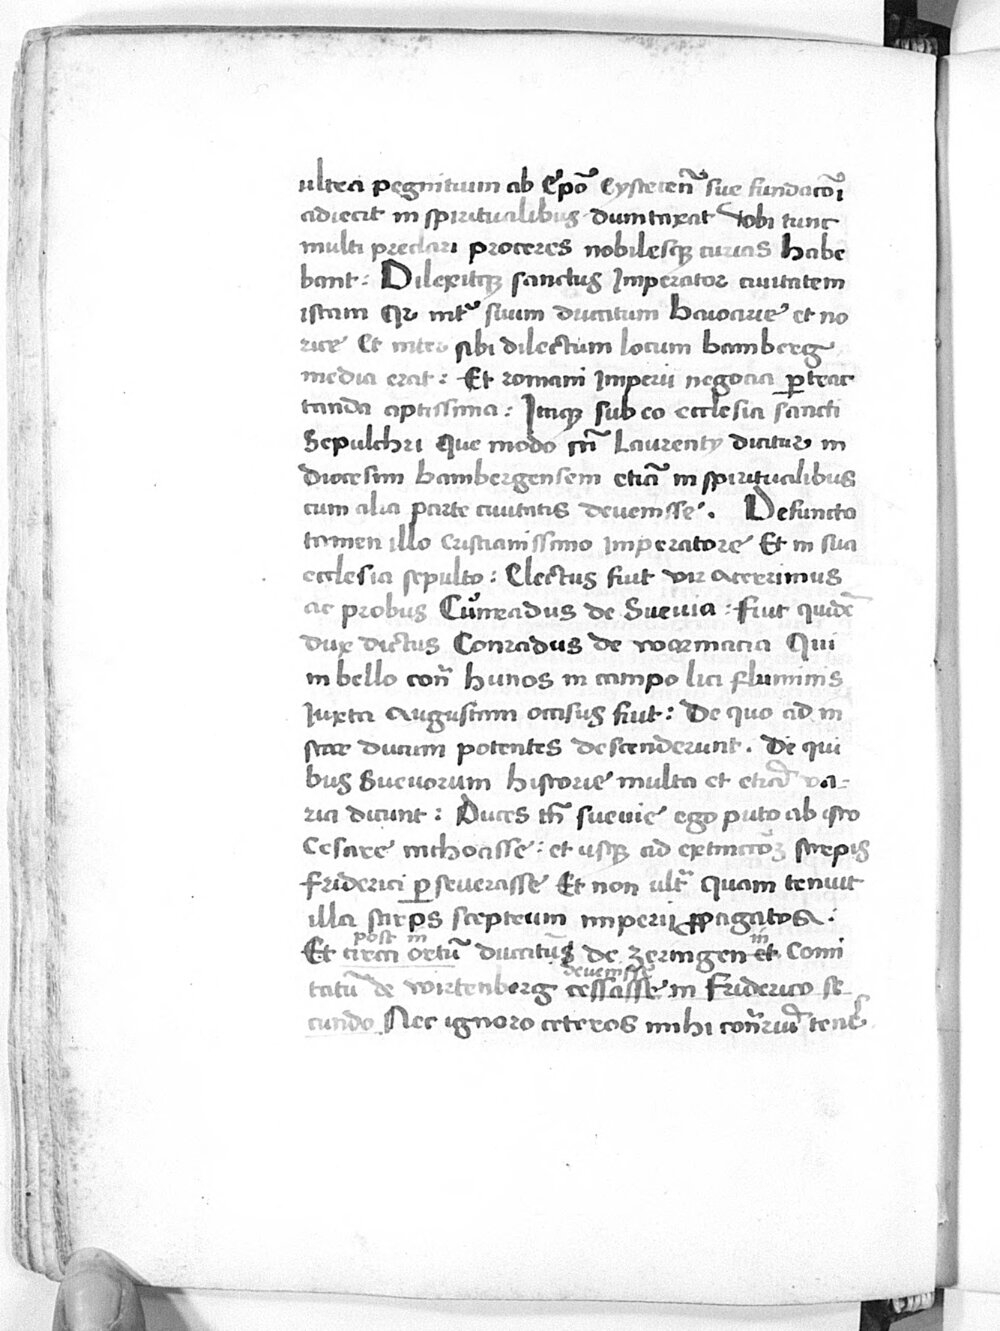 ultra pegnitium ab Ep̄o Eysteteñ sue fundac̄oi
adiecit in spiritualibus dumtaxat Vobi tunc
multi preclari proceres nobilesq curias habe
bant: Dilexitq sanctus Imperator ciuitatem
istam Qr int' suum ducatum bauarie et no
rice Et inter sibi dilectum locum bamberg
media erat: Et romani Imperii negocia ptrac
tanda aptissima: Itaq sub eo ecclesia sancti
Sepulchri Que modo sc̄i Laurenty dicitur in
diocesim bambergensem etiā in spiritualibus
cum alia parte ciuitatis deuenisse. Defuncto
tamen illo cristianissimo imperatore Et in sua
ecclesia sepulto: Electus fuit vir acerrimus
ac probus Cůnradus de Sueuia: fuit quidē
dux dictus Conradus de wormacia Qui
in bello cont̄ hunos in campo lici fluminis
Juxta Augustam occisus fuit: De quo ad in
star ducum potentes descenderunt. De qui
bus Sueuorum historie multa et etiā va-
ria dicunt: Duces tn̄ sueuie ego puto ab isto
Cesare inchoasse: et usq ad extinctōȝ stirpis
friderici pseuerasse Et non ultr̄ quam tenuit
illa stirps sceptrum imperii ppagatos.
post in in
Et circa ortū ducatūs de zeringen et Comi
deuenisse
tatū de wirtenberg cessasse in friderico se-
cundo Nec ignoro ceteros mihi cont̄riū tene